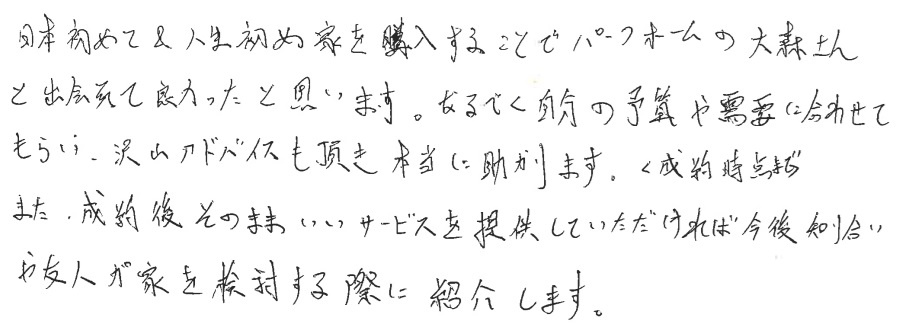 日本初めて&人生初め家を購入することでパーフホームの大森さん
と出会えて良かったと思います。なるべく自分の予算や需要に合わせて
もらい、沢山アドバイスも頂き本当に助かります。<成約時点まで
また、成約後そのままいいサービスを提供していただければ今後知り合い
や友人が家を検討する際に紹介します。